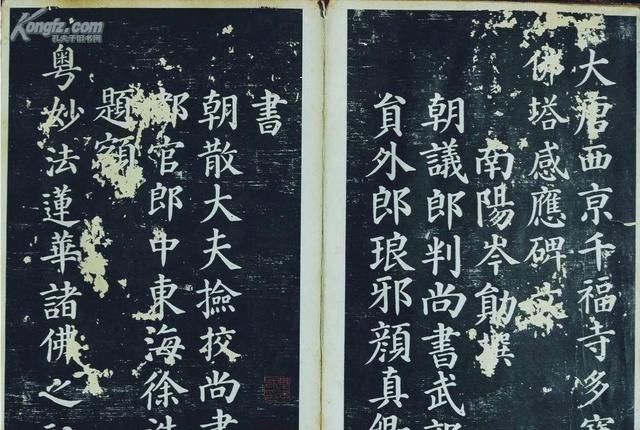 Kongfz.com
孔夫子旧书网
大唐西亰千福寺多寶
佛塔感應碑文
南陽岑勛撰
朝議郎判尚書武部
貟外郎琅邪顏真卿
書
朝散大夫撿挍尚書
都官郎中東海徐浩
題額
粵妙法蓮華諸佛之